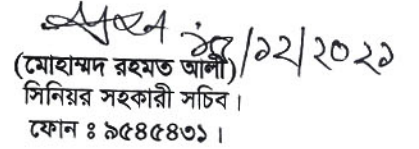 /১২/২০২১
(মোহাম্মদ রহমত আলী)
সিনিয়র সহকারী সচিব।
ফোন ঃ ৯৫৪৫৪৩১।